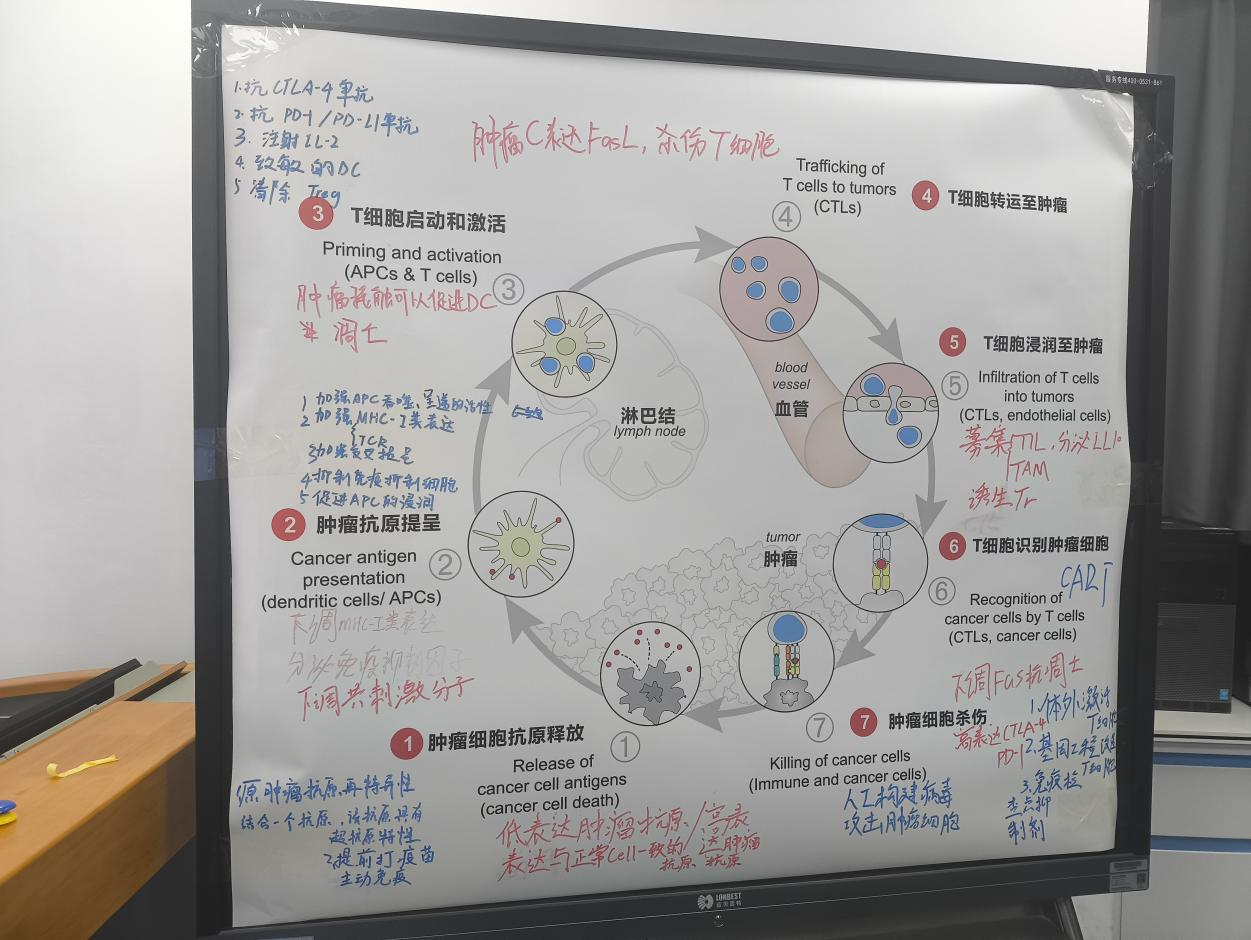 服务专线400-0531-861
1.抗CTLA-4单抗
2.抗PD-1/PD-L1单抗
3.注射IL-2
4.致敏的DC
5 清除Treg
肿瘤C表达FasL,杀伤T细胞
3 T细胞启动和激活
Priming and activation
(APCs & T cells)
3
肿瘤接触可以促进DC
凋亡
1 加强APC吞噬、呈递的活性
2 加强MHC-I类表达
TCR
4 抑制免疫抑制细胞
5 促进APC的浸润
2 肿瘤抗原提呈
Cancer antigen
presentation
(dendritic cells/ APCs)
2
下调MHC-I类表达
分泌免疫抑制因子
下调共刺激分子
1 肿瘤细胞抗原释放
Release of
cancer cell antigens
(cancer cell death)
1
原肿瘤抗原再特异性
结合一个抗原,该抗原具有
超抗原特性
2.提前打疫苗
主动免疫
低表达肿瘤抗原/高表
表达与正常Cell一致的
抗原、
达肿瘤
抗原
Trafficking of
T cells to tumors
(CTLs)
4
4 T细胞转运至肿瘤
blood
vessel
血管
淋巴结
lymph node
5 T细胞浸润至肿瘤
5
Infiltration of T cells
into tumors
(CTLs, endothelial cells)
募集TIL,分泌
TAM
诱生Tr
tumor
肿瘤
6 T细胞识别肿瘤细胞
CART
6
Recognition of
cancer cells by T cells
(CTLs, cancer cells)
下调Fas抗凋亡
高表达CTLA-4
PD-1
1.体外激活
T细胞
2.基因工程改造
T细胞
3.免疫检
查点抑
制剂
7
7 肿瘤细胞杀伤
Killing of cancer cells
(Immune and cancer cells)
人工构建病毒
攻击肿瘤细胞
LONBEST